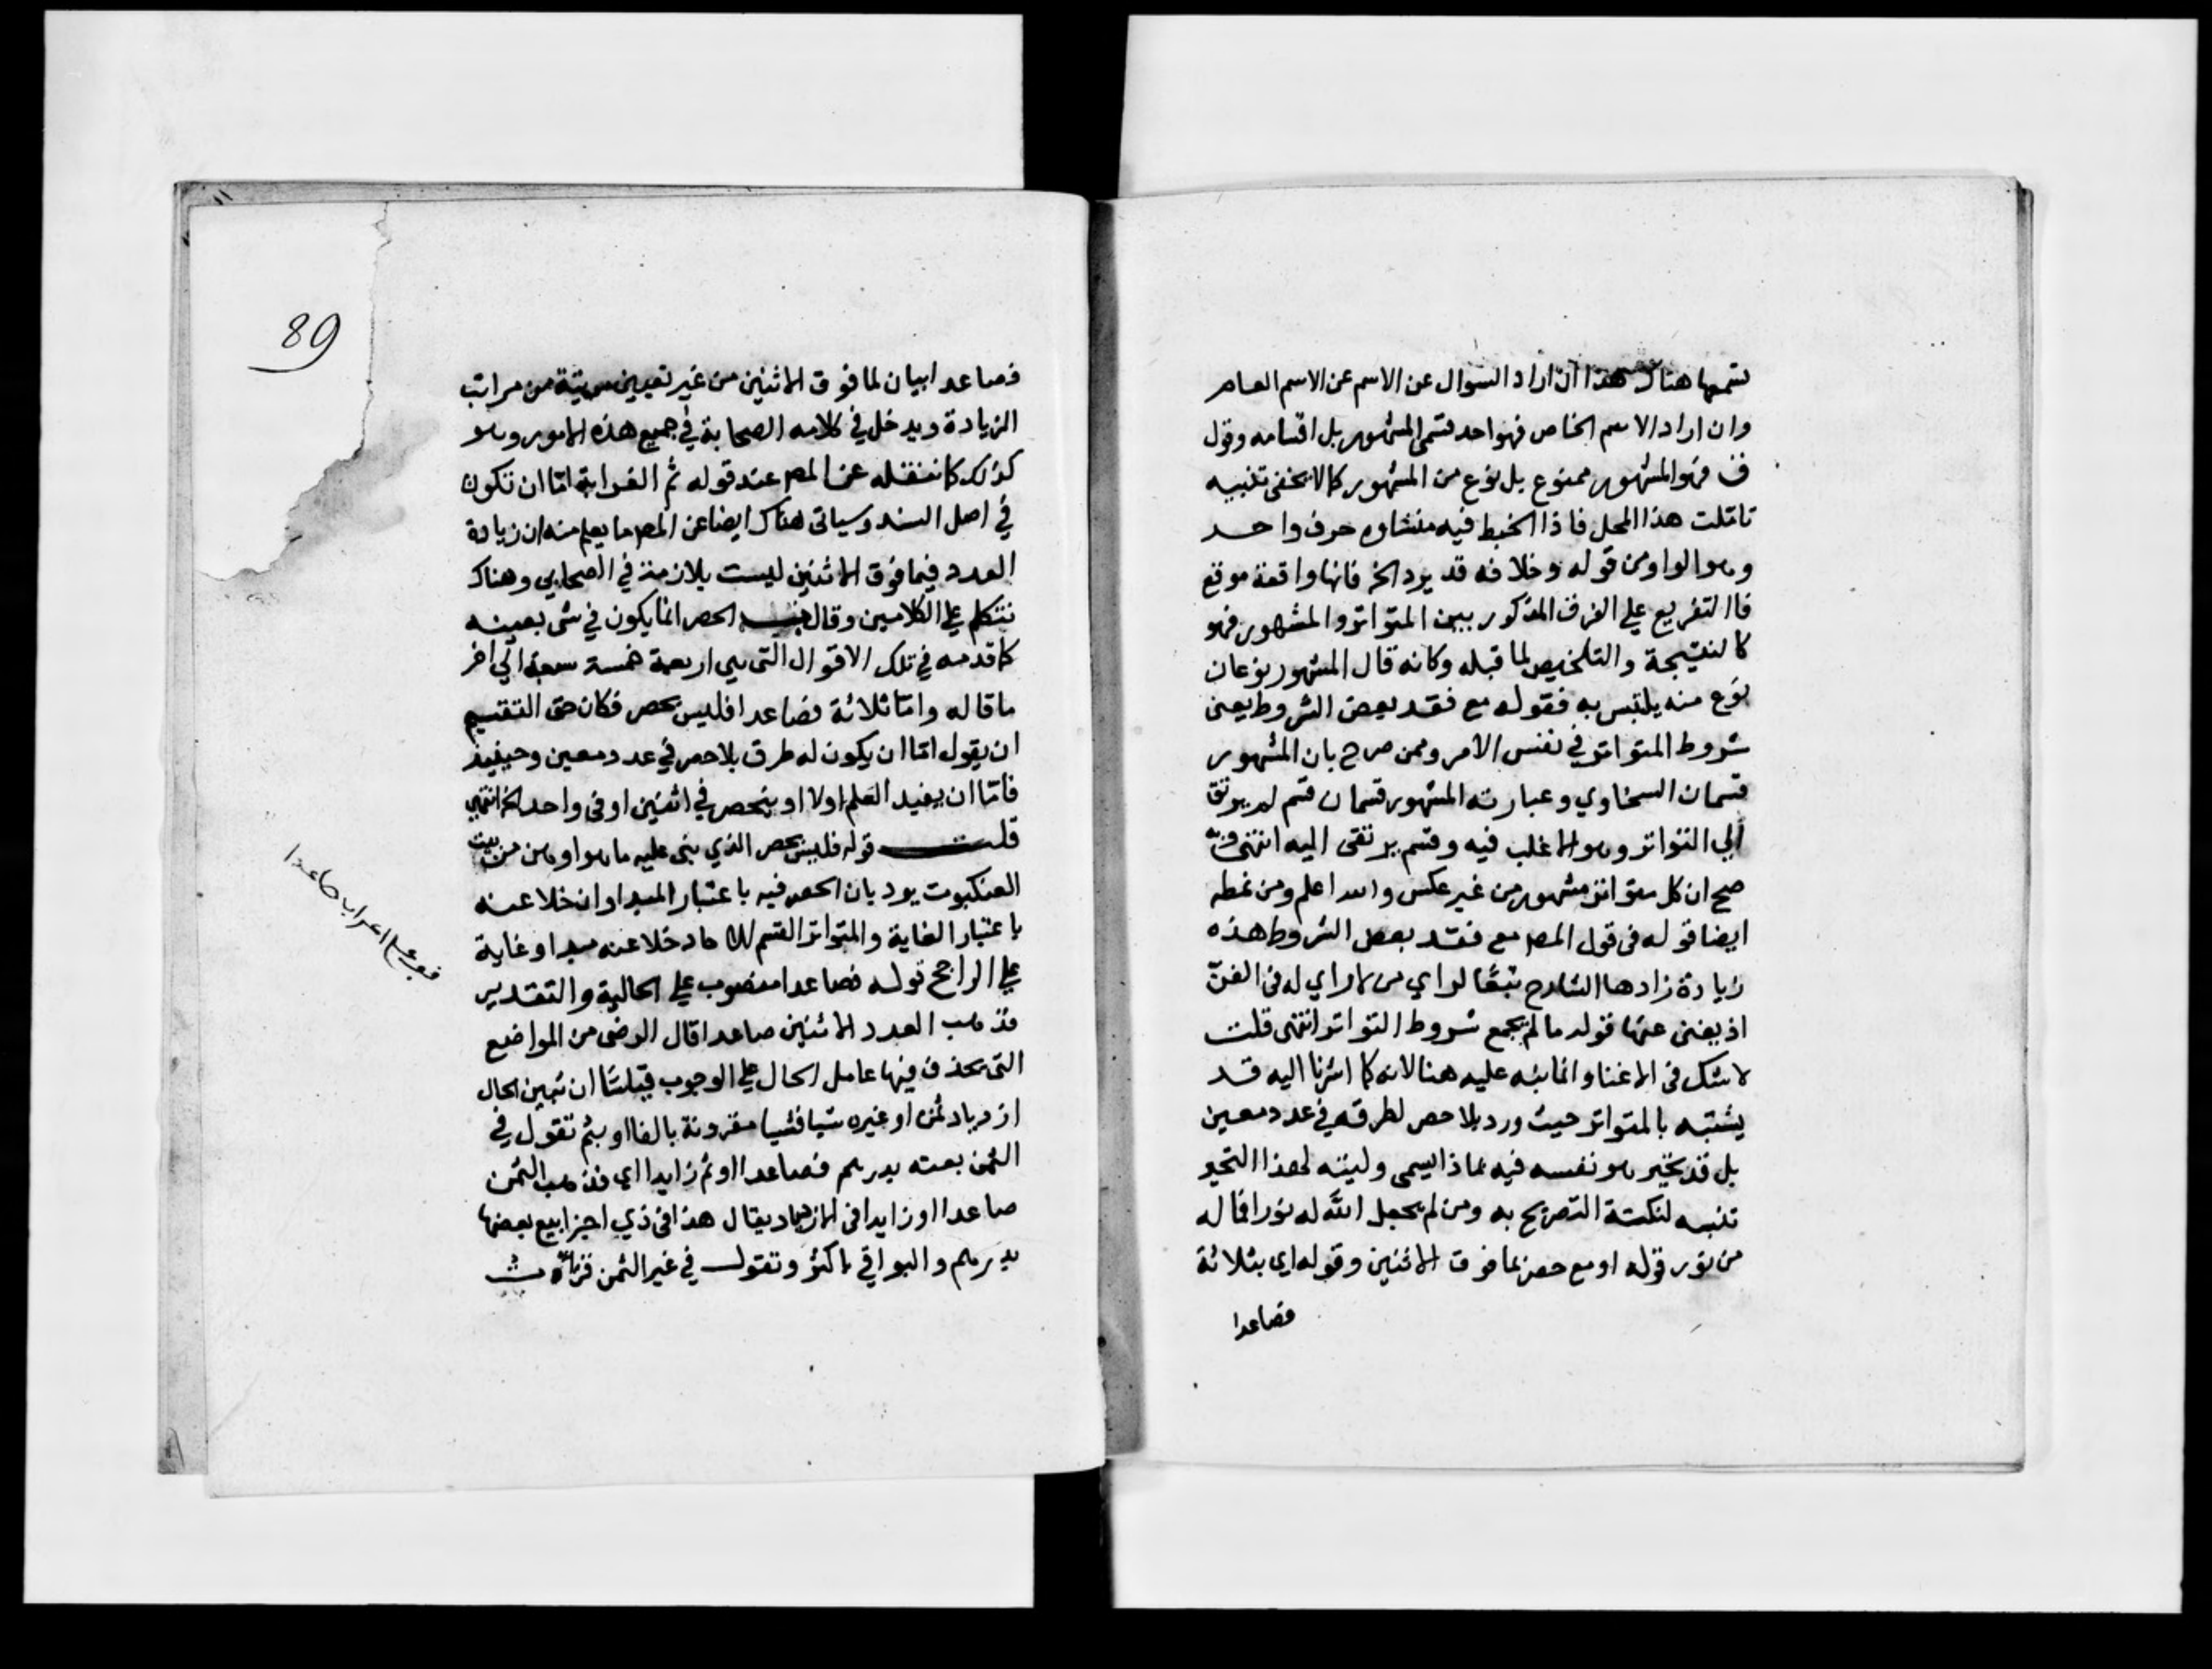 هناك هذا ان اراد السوال عن الاسم عن الاسم العام
وان اراد الاسم الخاص فهو احد قسمى المشهور بل اقسامه وقول
ف فهو المشهور ممنوع بل نوع من المشهور كما لا يخفى تنبيه
تاملت هذا المحل فاذا الخبط فيه منشاوه حرف واحد
وهو الواو من قوله وخلافه قد يرد الخ فانها واقعة موقع
فا التفريع على الفرق المذكور بين المتواتر والمشهور فهو
كالنتيجة والتلخيص لما قبله وكانه قال المشهور نوعان
نوع منه يلتبس به فقوله مع فقد بعض الشروط يعنى
شروط المتواتر في نفس الامر وممن صرح بان المشهور
قسمان السخاوي وعبارته المشهور قسمان قسم لم يرتق
الي التواتر وهو الاغلب فيه وقسم يرتقى اليه انتهى
صح ان كل متواتر مشهور من غير عكس والله اعلم ومن
ايضا قوله فى قول المصر مع فقد بعض الشروط هذه
زيادة زادها الشارح تبعًا لراي من لا راي له فى الفنّ
اذ يغنى عنها قوله ما لم يجمع شروط التواتر انتهى قلت
لا شك فى الاغنا وانما نبه عليه هنا لانه كما اشرنا اليه قد
يشتبه بالمتواتر حيث ورد بلا حصر لطرقه في عدد معين
بل قد تحير هو نفسه فيه بماذا يسمى وليته لهذا التحير
تنبه لنكتة التصريح به ومن لم يجعل الله له نورا فما له
من نور قوله او مع حصر بما فوق الاثنين وقوله اي بثلاثة
فصاعدا
89
فصاعدا بيان لما فوق الاثنين من غير تعيين مرتبة من مراتب
الزيادة ويدخل في كلامه الصحابة في جميع هذه الامور وهو
كذلك كما ننقله عن المصر عند قوله ثم الغرابة امّا ان تكون
في اصل السند وسياتى هناك ايضا عن المصر ما يعلم منه ان زيادة
العدد فيما فوق الاثنين ليست بلازمة في الصحابي وهناك
نتكلم على الكلامين وقال الحصر انما يكون في شى بعينه
كما قدمه في تلك الاقوال التى هي اربعة خمسة سبعة الي اخر
ما قاله وامّا ثلاثة فصاعدا فليس بحصر فكان حق التقسيم
ان يقول امّا ان يكون له طرق بلا حصر في عدد معين وحينيذ
فامّا ان يفيد العلم اولا او ينحصر في اثنين او فى واحد الخ انتهى
قلت قوله فليس بحصر الذي بنى عليه ما هو اوهن من بيت
العنكبوت يود بان الحصر فيه باعتبار المبدا وان خلا عنه
باعتبار الغاية والمتواتر القسم له ما خلا عنه مبدا وغاية
على الراجح قوله فصاعدا منصوب على الحالية والتقدير
فذهب العدد الاثنين صاعدا قال الرضى من المواضع
التى يحذف فيها عامل الحال على الوجوب قياسا ان تبين الحال
ازدياد ثمن او غيره شيا فشيا مقرونة بالفا او بثم تقول في
الثمن بعته بدرهم فصاعدا او ثم زايدا اي فذهب الثمن
صاعدا او زايدا فى الازدياد يقال هذا فى ذي اجزا بيع بعضها
بدرهم والبواقي باكثر وتقول في غير الثمن قرات
اعراب صاعدا